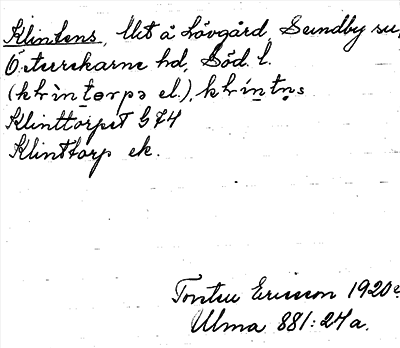 Klintens, Utt å Lövgård, Sundby sn,
Österrekarne hd, Söd. l.
(klìntorpə el.), klíntn̥s
Klinttorpet G74
Klinttorp ek.
Torsten Ericsson 1920
Ulma 881:27a.